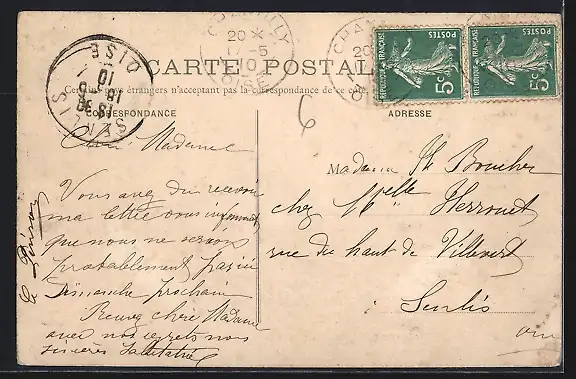 CHANTILLY
20 *
17 - 5
10
OISE
CARTE POSTALE
Certains pays étrangers n'acceptent pas la correspondance de ce
CORRESPONDANCE
ADRESSE
SENLIS
18 - 5
10
OISE
REPUBLIQUE FRANÇAISE
POSTES
5c
REPUBLIQUE FRANÇAISE
POSTES
5c
6
Chère Madame
Vous avez du recevoir
ma lettre vous informant
que nous ne serions
probablement pas ici
Dimanche prochain
Recevez chère Madame
avec nos regrets nos
sincères salutations
Madame Boucher
chez Melle Herrouet
rue du haut de Villevert
Senlis